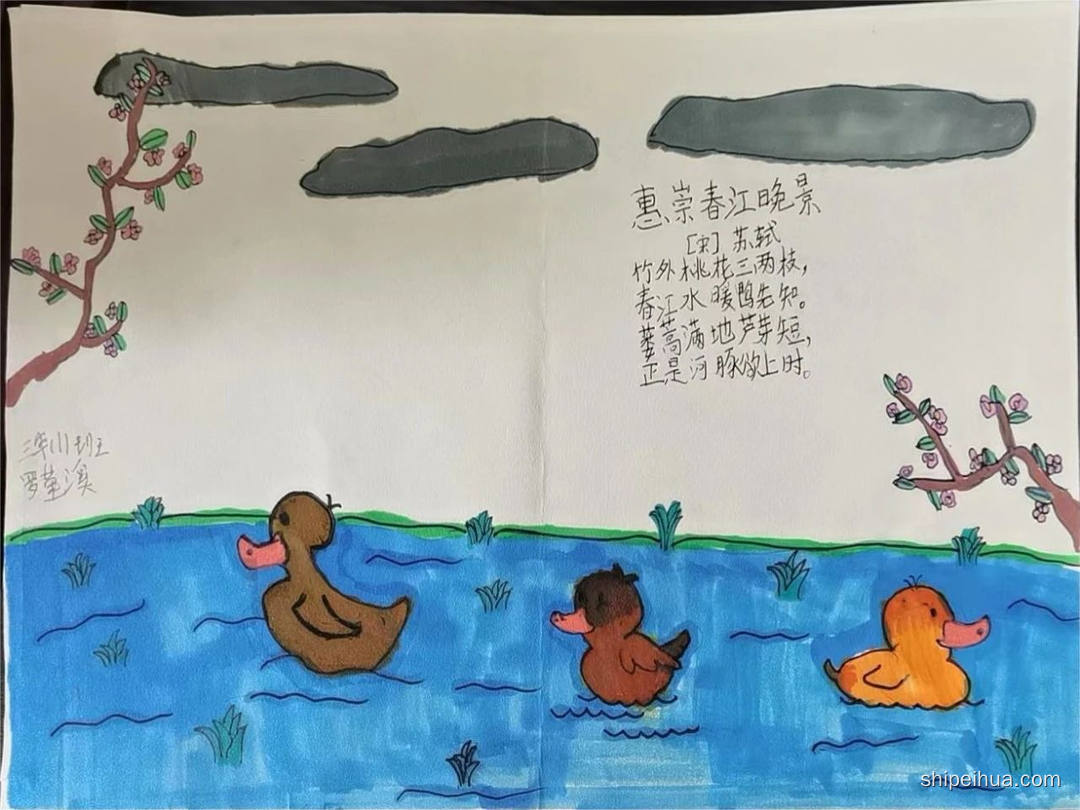 惠崇春江晚景
[宋] 苏轼
竹外桃花三两枝，
春江水暖鸭先知。
蒌蒿满地芦芽短，
正是河豚欲上时。
三年(1)班
shipeihua.com